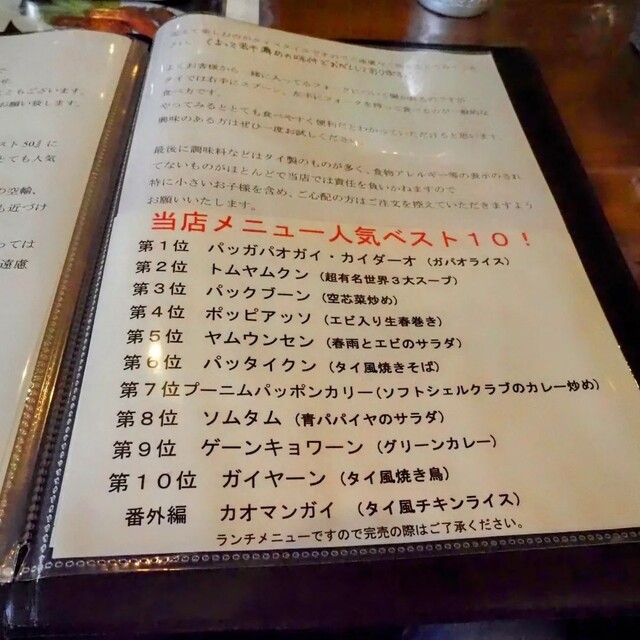 ともございます。
お願い致します。
スト50』に
とても人気
の空輪、
も近づけ
っては
遠慮
よくお客様から
タイでは右手にスプーン、左手にフォークを持って食べるのが一般的な
食べ方です。
やってみるととても食べやすく便利だとわかっていただけると思います。
興味のある方はぜひ一度お試しください。
最後に調味料などはタイ製のものが多く、食物アレルギー等の表示のされ
てないものがほとんどで当店では責任を負いかねますので
特に小さいお子様を含め、ご心配の方はご注文を控えていただきますよう
お願いいたします。
当店メニュー人気ベスト１０！
第１位 パッガパオガイ・カイダーオ（ガパオライス）
第２位 トムヤムクン（超有名世界３大スープ）
第３位 パックブーン（空芯菜炒め）
第４位 ポッピアッソ（エビ入り生春巻き）
第５位 ヤムウンセン（春雨とエビのサラダ）
第６位 パッタイクン（タイ風焼きそば）
第７位プーニムパッポンカリー(ソフトシェルクラブのカレー炒め)
第８位 ソムタム（青パパイヤのサラダ）
第９位 ゲーンキョワーン（グリーンカレー）
第１０位 ガイヤーン（タイ風焼き鳥）
番外編 カオマンガイ（タイ風チキンライス）
ランチメニューですので完売の際はご了承ください。